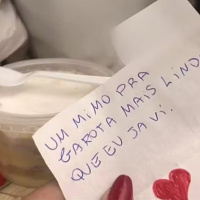 UM MIMO PRA
GAROTA MAIS LIND
QUE EU JA VI.